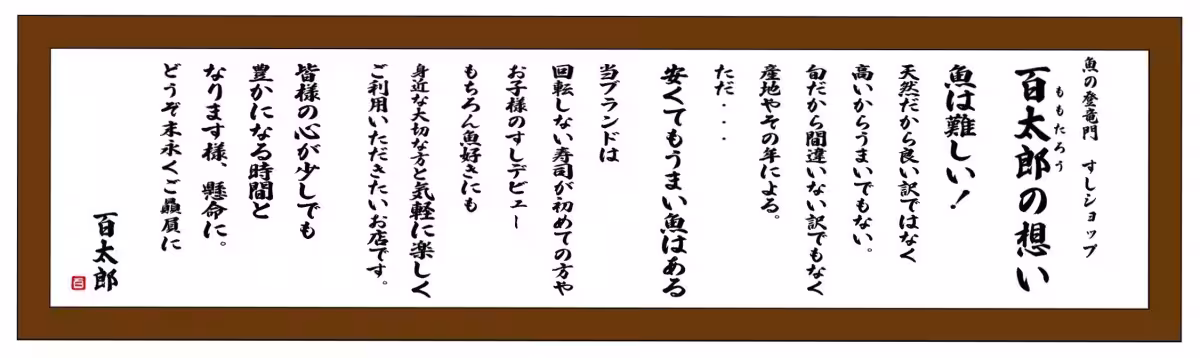 魚の登竜門　すしショップ
百太郎の想い
ももたろう
魚は難しい！
天然だから良い訳ではなく
高いからうまいでもない。
旬だから間違いない訳でもなく
産地やその年による。
ただ・・・
安くてもうまい魚はある
当ブランドは
回転しない寿司が初めての方や
お子様のすしデビュー
もちろん魚好きにも
身近な大切な方と気軽に楽しく
ご利用いただきたいお店です。
皆様の心が少しでも
豊かになる時間と
なります様、懸命に。
どうぞ末永くご贔屓に
百太郎